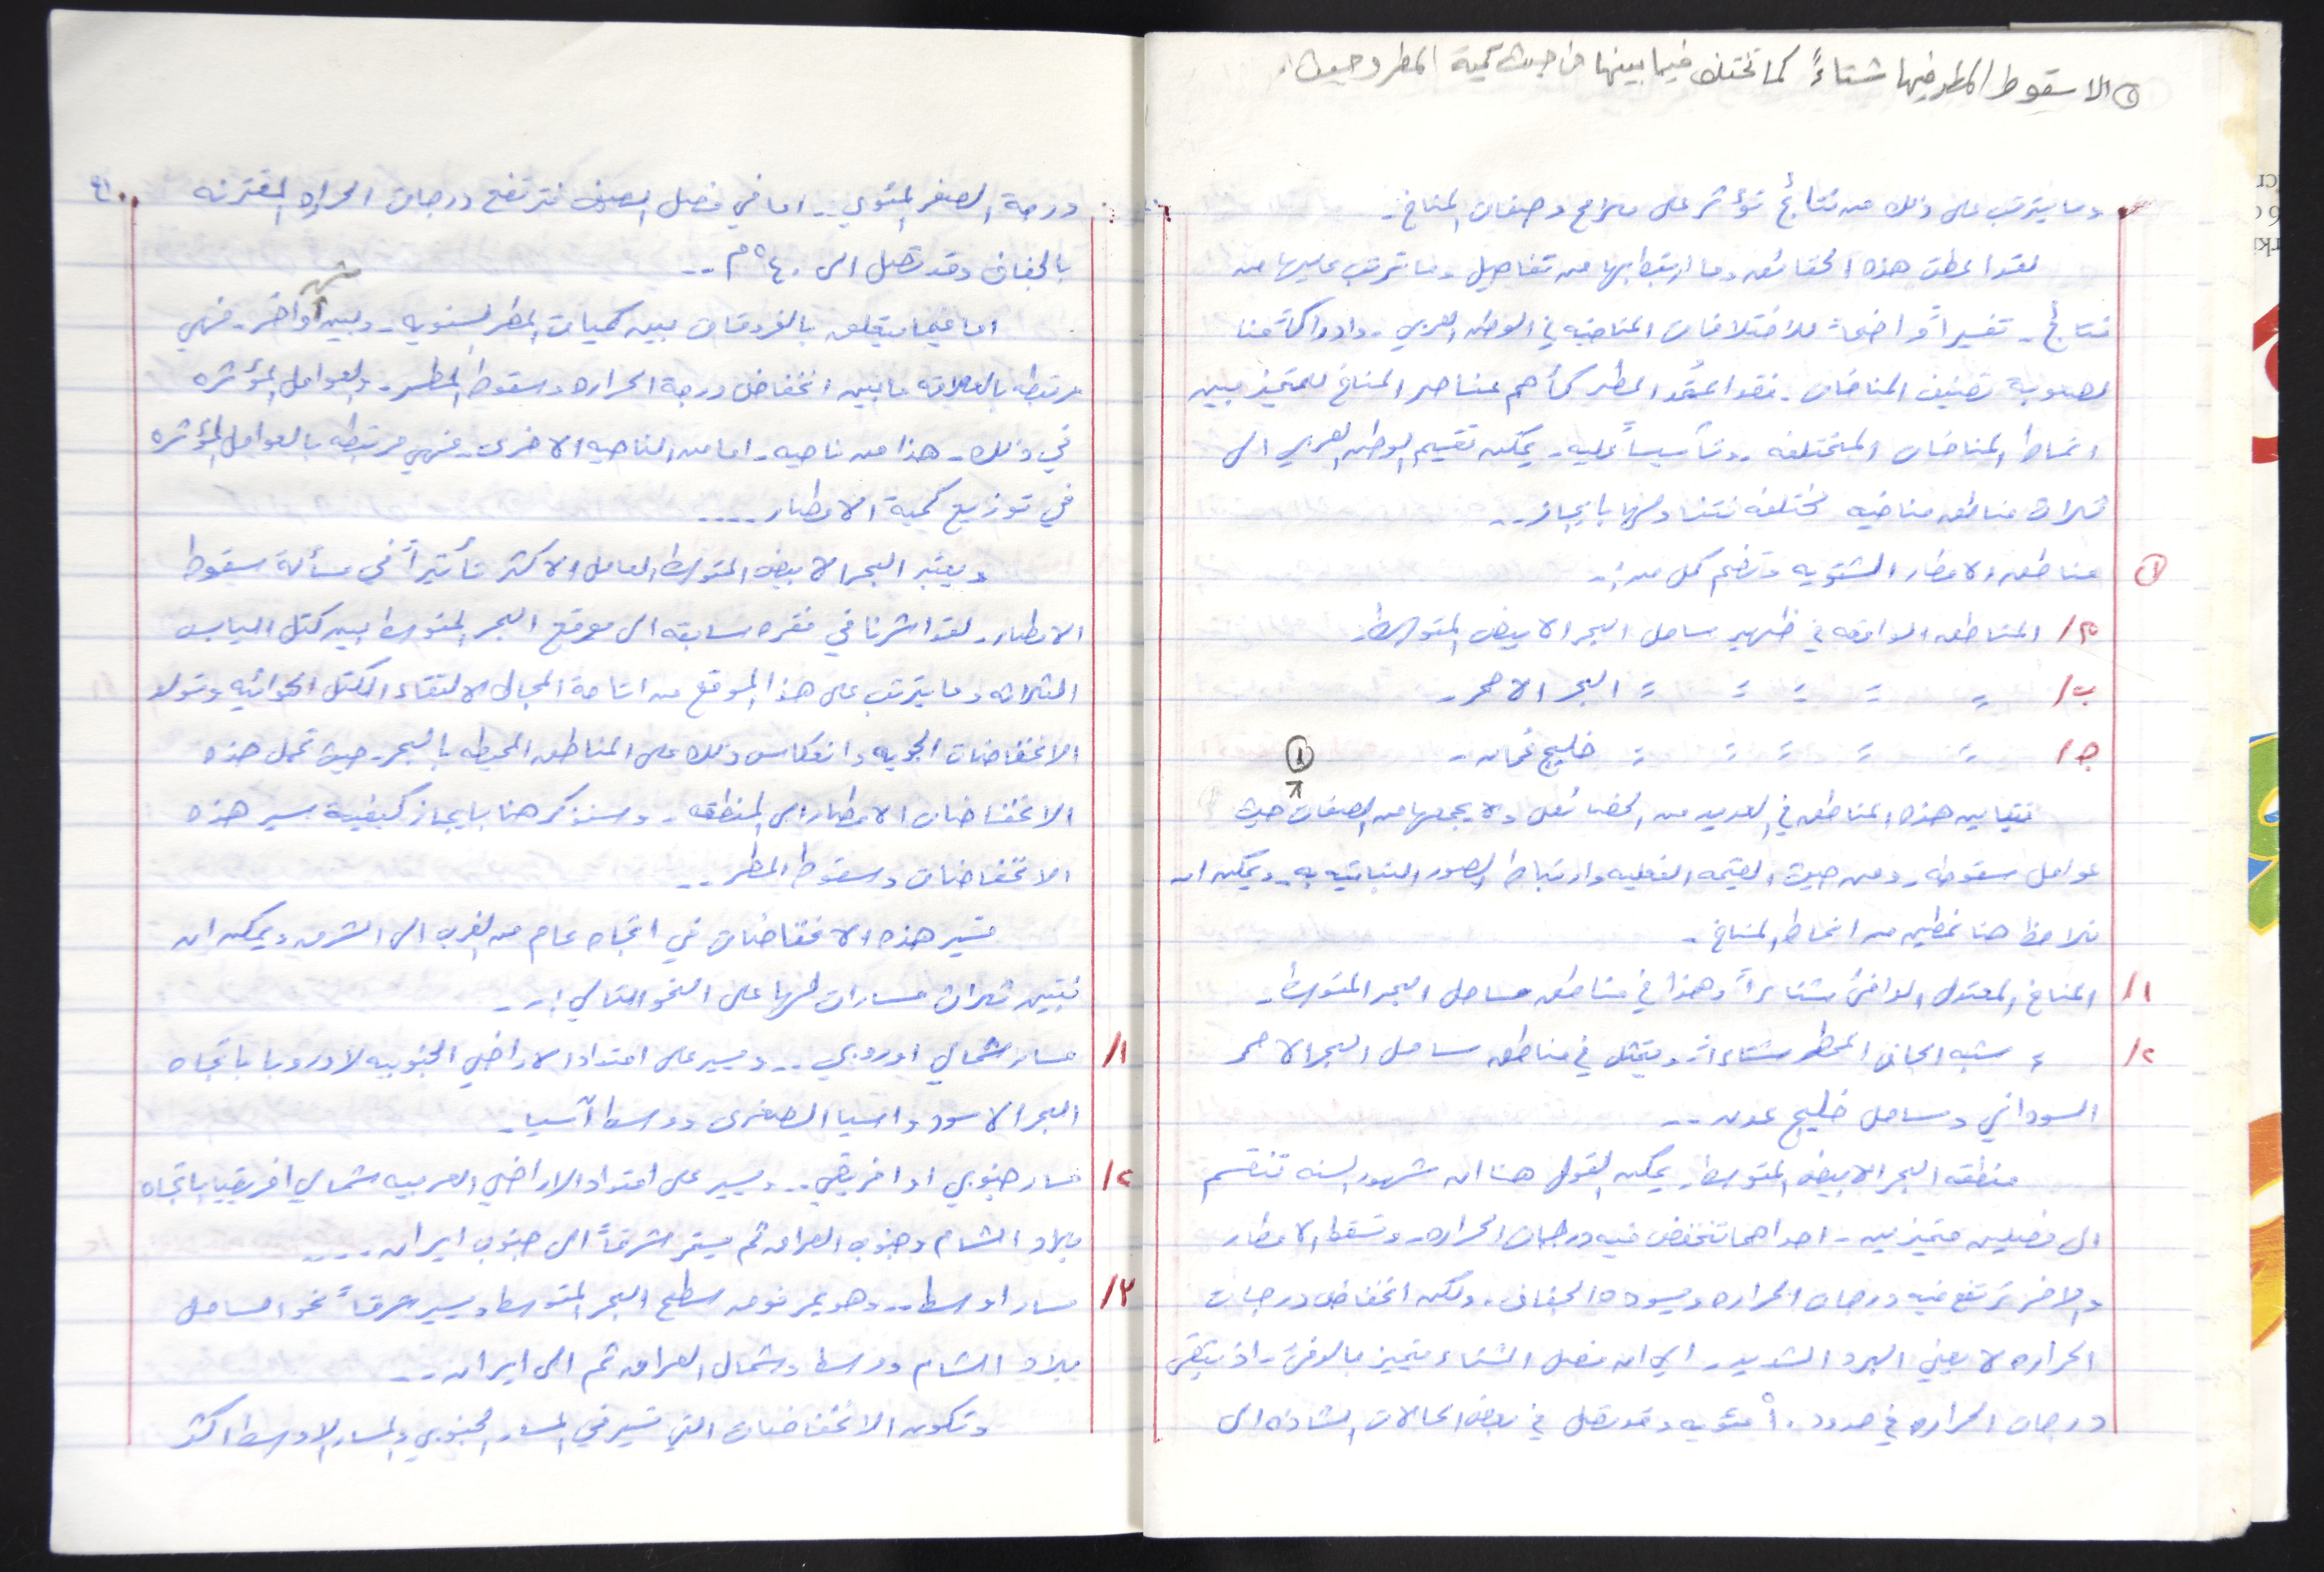 ① الا سقوط المطر فيها شتاءً كما تختلف فيما بينها من حيث كمية المطر وحيث.
وما يترتب على ذلك من نتائج تؤثر على ملامح وصفات المناخ.
لقد اعطت هذه الحقائق وما ارتبط بها من تفاصيل وما ترتب عليها من
نتائج - تفسيراً واضحاً للاختلافات المناخيه في الوطن العربي - وادراكاً منا
لصعوبة تصنيف المناخات - فقد اعتمد المطر كأهم عناصر المناخ للتمييز بين
انماط المناخات المختلفه - وتأسيساً عليه - يمكن تقسيم الوطن العربي الى
ثلاث مناطق مناخيه مختلفه نتناولها بايجاز ..
① مناطق الامطار الشتويه وتضم كل من :-
أ/ المناطق الواقعه في ظهير ساحل البحر الابيض المتوسط.
ب/ = = = = = البحر الاحمر -
ج/ = = = = = خليج عمان - ①
تتباين هذه المناطق في العديد من الخصائص ولا يجمعها من الصفات حيث
عوامل سقوطه - ومن حيث القيمه الفعليه وارتباط الصور النباتيه به - ويمكن ان
نلاحظ هنا نمطين من انماط المناخ -
١/ المناخ المعتدل الدافئ شتاءاً وهذا في مناطق ساحل البحر المتوسط -
٢/ = شبه الجاف الممطر شتاءاً - ويتمثل في مناطق ساحل البحر الاحمر
السوداني وساحل خليج عدن --
منطقه البحر الابيض المتوسط - يمكن القول هنا ان شهور السنه تنقسم
الى فصليين متميزيين - احداهما تنخفض فيه درجات الحراره - وتسقط الامطار
والاخر ترتفع فيه درجات الحراره ويسوده الجفاف - ولكن انخفاض درجات
الحراره لا يعني البرد الشديد - اي ان فصل الشتاء يتميز بالدفئ - اذ تبقى
درجات الحراره في حدود ١٠ مئويه وقد تصل في بعض الحالات الشاذه الى
٩١
درجة الصفر المئوي .. اما في فصل الصيف فترتفع درجات الحراره المقترنه
بالجفاف وقد تصل الى ٤٠°م --
اما فيما يتعلق بالفروقات بين كميات المطر السنويه - وبين شهر واخر - فهي
مرتبطه بالعلاقه ما بين انخفاض درجة الحراره وسقوط المطر - والعوامل المؤثره
في ذلك - هذا من ناحيه - اما من الناحيه الاخرى - فهي مرتبطه بالعوامل المؤثره
في توزيع كمية الامطار ----
ويعتبر البحر الابيض المتوسط العامل الاكثر تأثيراً في مسألة سقوط
الامطار - لقد اشرنا في فقره سابقه الى موقع البحر المتوسط بين كتل اليابس
الثلاثه وما يترتب على هذا الموقع من اتاحة المجال لالتقاء الكتل الهوائيه وتولد
الانخفاضات الجويه وانعكاس ذلك على المناطق المحيطه بالبحر - حيث تحمل هذه
الانخفاضات الامطار الى المنطقه - وسنذكر هنا بايجاز كيفية سير هذه
الانخفاضات وسقوط المطر --
تسير هذه الانخفاضات في اتجاه عام من الغرب الى الشرق ويمكن ان
نتبين ثلاث مسارات لها على النحو التالي :-
١/ مسار شمالي اوروبي .. ويسير على امتداد الاراضي الجنوبيه لاوروبا باتجاه
البحر الاسود واسيا الصغرى ووسط آسيا -
٢/ مسار جنوبي او افريقي .. ويسير على امتداد الاراضي العربيه شمالي افريقيا باتجاه
بلاد الشام وجنوب العراق ثم يستمر شرقاً الى جنوب ايران ----
٣/ مسار اوسط .. وهو يمر فوق سطح البحر المتوسط ويسير شرقاً نحو الساحل
بلاد الشام ووسط وشمال العراق ثم الى ايران --
وتكون الانخفاضات التي تسير في المسار الجنوبي والمسار الاوسط اكثر